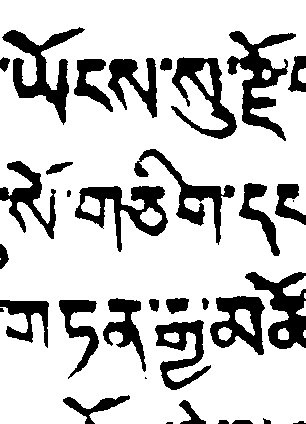 ཡོངས་སུ་རྫོ
སོ་གཅིག་དང
གདན་གྱ་མཚོ